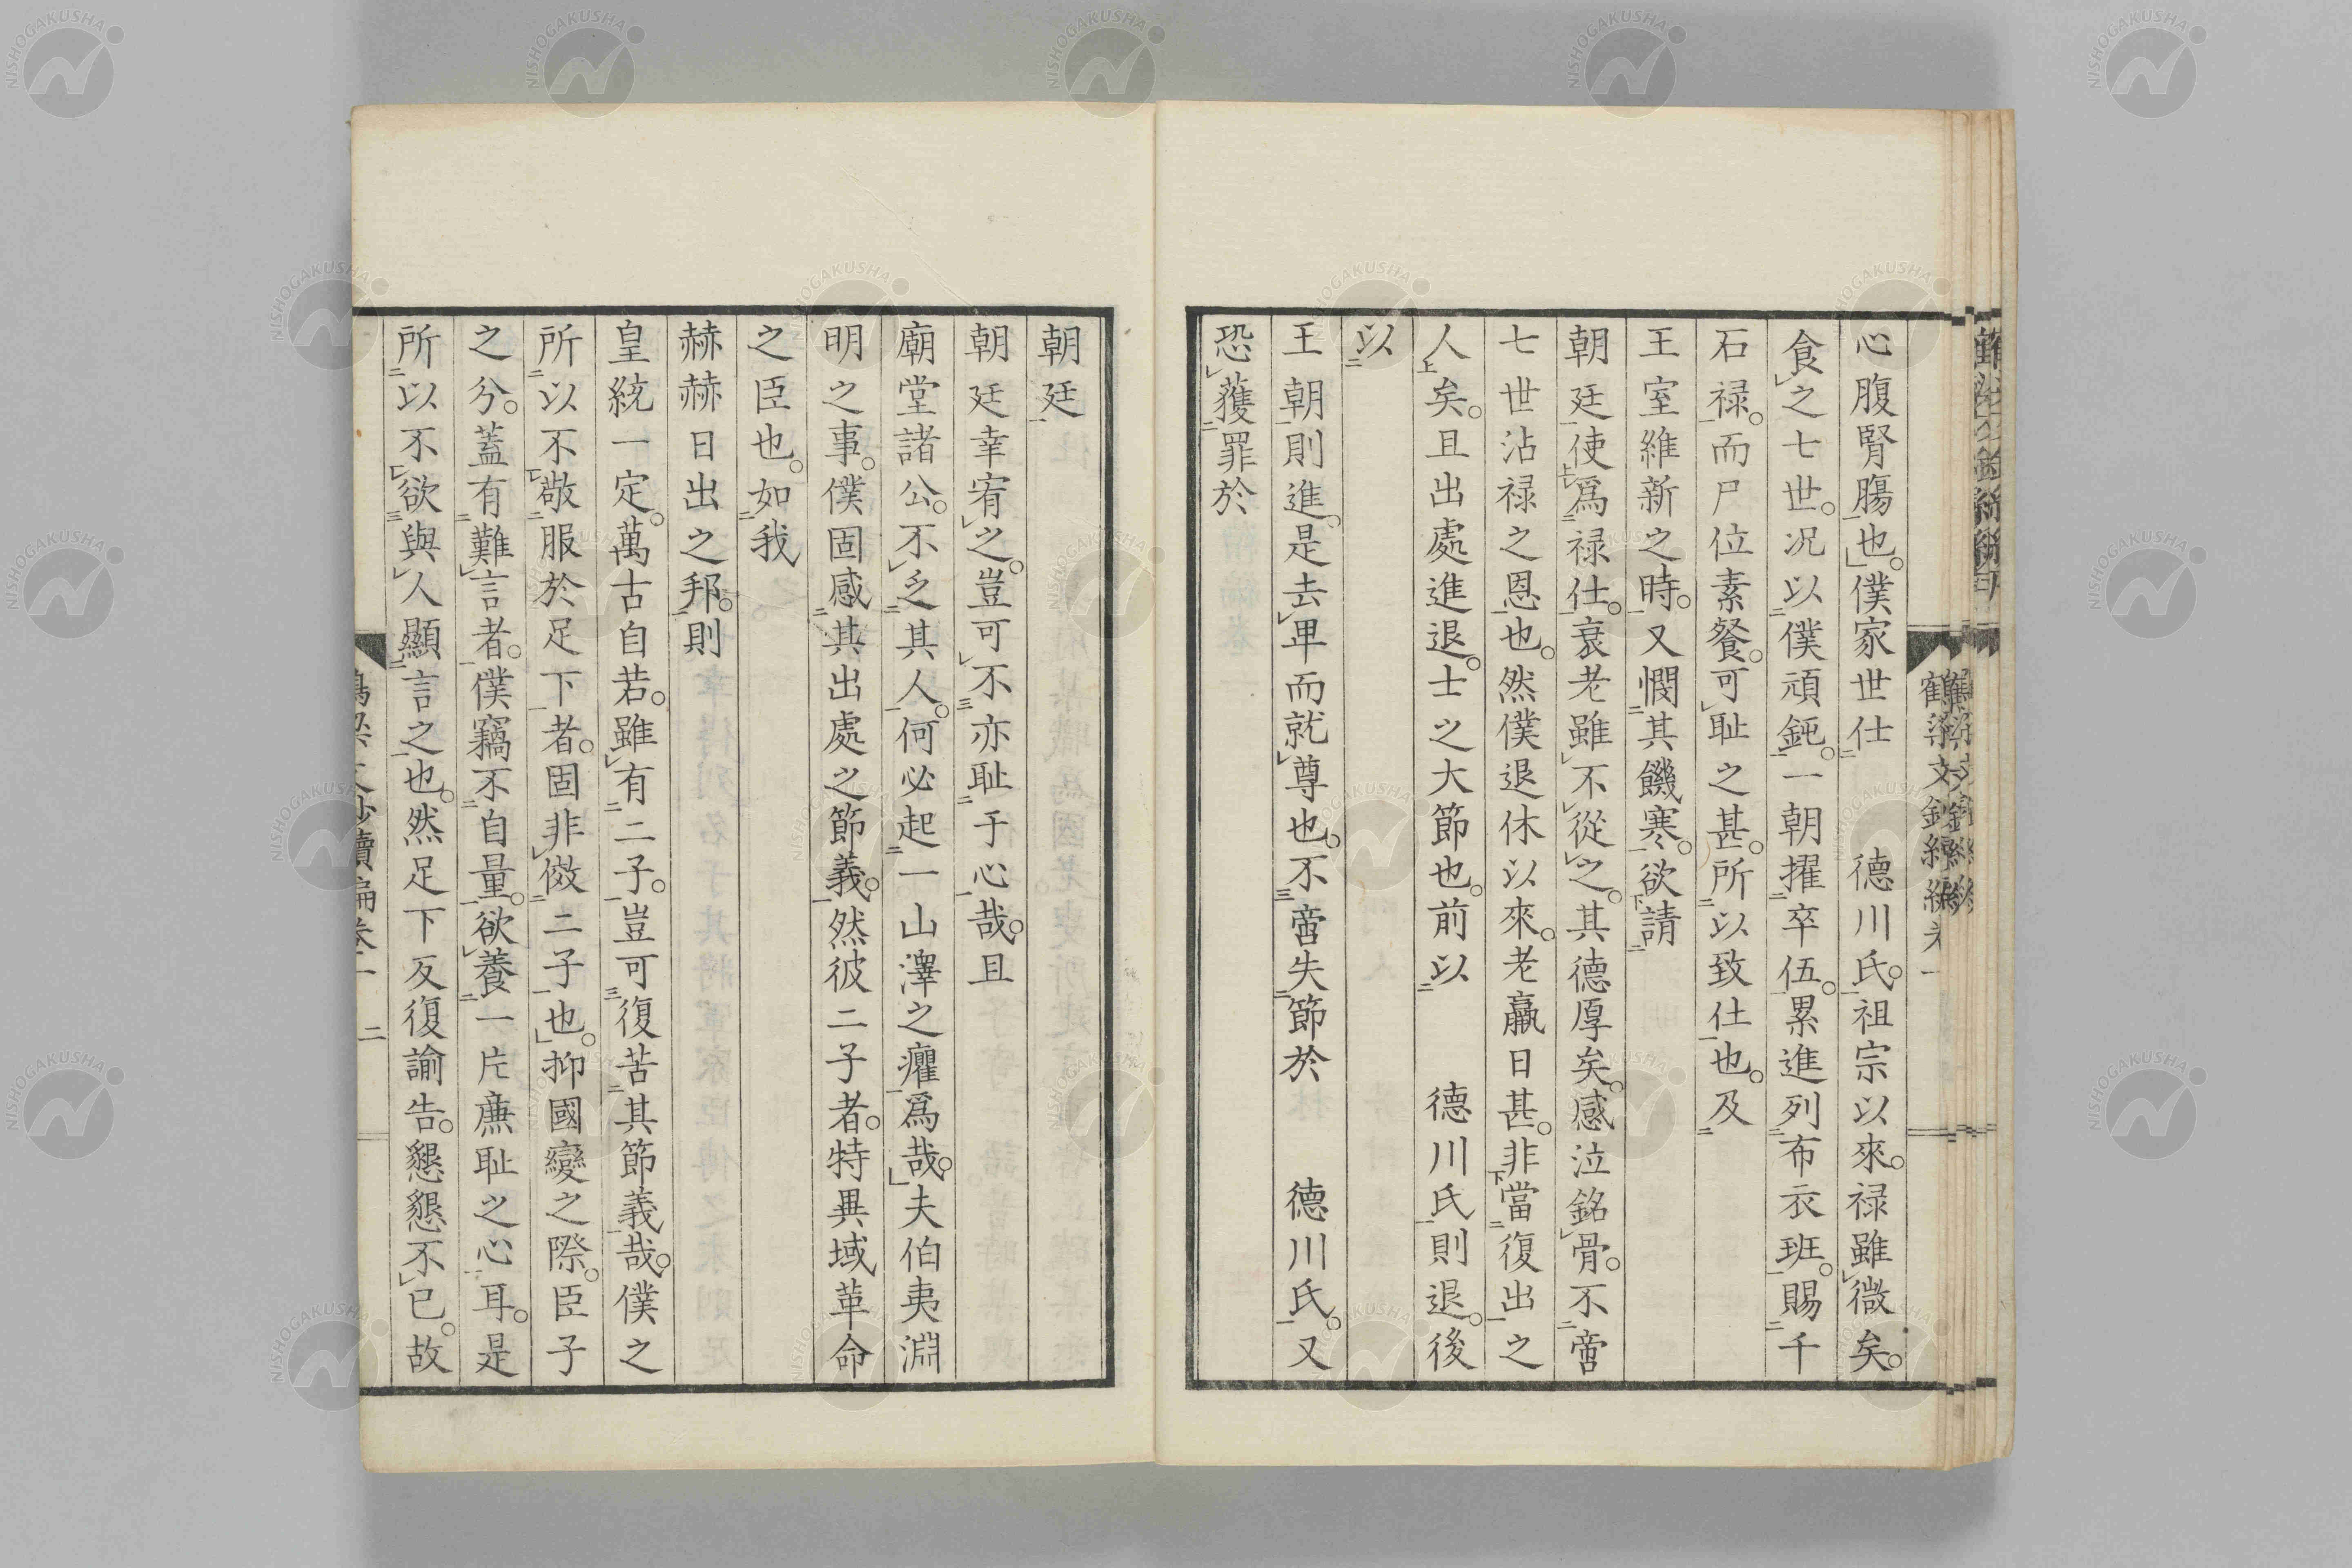 心腹腎膓也。僕家世仕　德川氏。祖宗以來。禄雖微矣。
食之七世。况以僕頑鈍。一朝擢卒伍。累進列布衣班。賜千
石禄。而尸位素餐。可耻之甚。所以致仕也。及
王室維新之時。又憫其饑寒。欲請
朝廷使爲禄仕。衰老雖不從之。其德厚矣。感泣銘骨。不啻
七世沾禄之恩也。然僕退休以來。老羸日甚。非當復出之
人矣。且出處進退。士之大節也。前以　德川氏則退。後
以
王朝則進。是去卑而就尊也。不啻失節於　德川氏。又
恐獲罪於
朝廷
朝廷幸宥之。豈可不亦耻于心哉。且
廟堂諸公。不乏其人。何必起一山澤之癯爲哉。夫伯夷淵
明之事。僕固感其出處之節義。然彼二子者。特異域革命
之臣也。如我
赫赫日出之邦。則
皇統一定。萬古自若。雖有二子。豈可復苦其節義哉。僕之
所以不敬服於足下者。固非傚二子也。抑國變之際。臣子
之分。蓋有難言者。僕竊不自量。欲養一片廉耻之心耳。是
所以不欲與人顯言之也。然足下反復諭告。懇懇不已。故
二
NISHOGAKUSHA